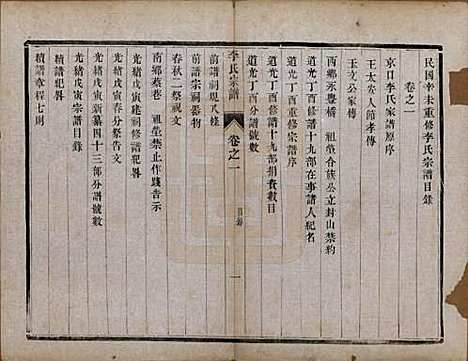 民國辛未重修李氏宗譜目錄
卷之一
京口李氏家譜原序
王太安人節孝傳
王文公家傳
西鄉永豐橋 祖塋合族公立封山禁約
道光丁酉重修宗譜序
道光丁酉修譜十九部在事諸人紀名
道光丁酉修譜十九部捐費數目
道光丁酉分譜號數
李氏宗譜 卷之一 目錄 一
前譜祠規八條
前譜宗祠器物
春秋二祭祝文
南鄉蔡巷 祖塋禁止作踐告示
光緒戊寅建祠修譜記畧
光緒戊寅春分祭告文
光緒戊寅新纂四十三部分譜號數
光緒戊寅宗譜目錄
續譜記畧
續譜章程七則